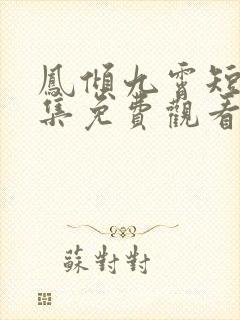 鳳傾九霄短
集免費觀看
蘇對對